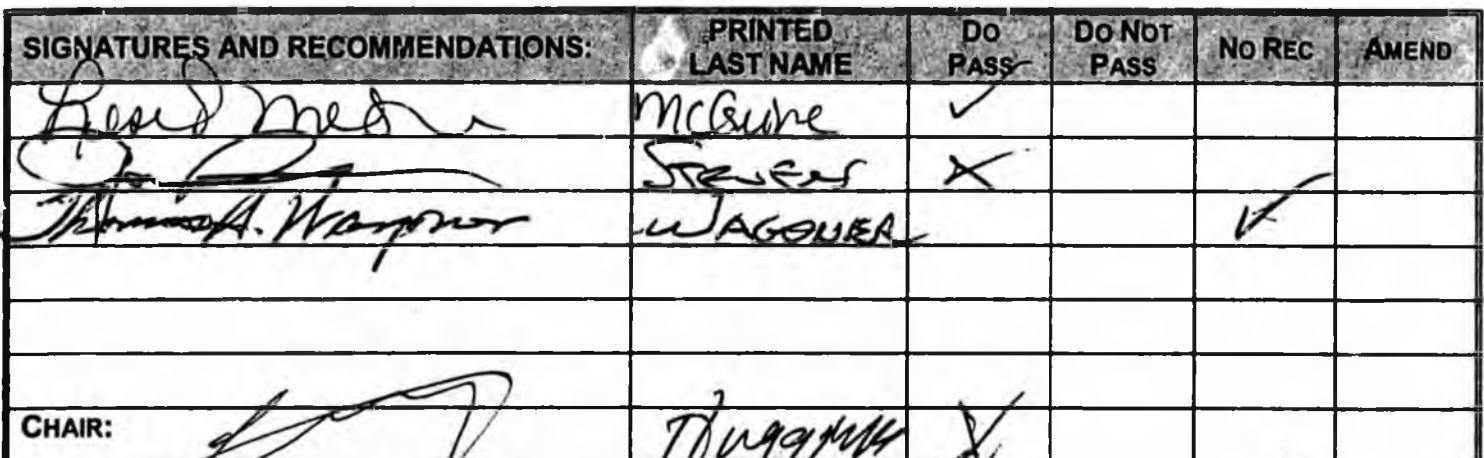 SIGNATURES AND RECOMMENDATIONS: PRINTED LAST NAME DO PASS DO NOT PASS NO REC AMEND
McGuire ✓
STEVENS X
Thomas H. Wagoner WAGONER ✓
CHAIR: Huggins X